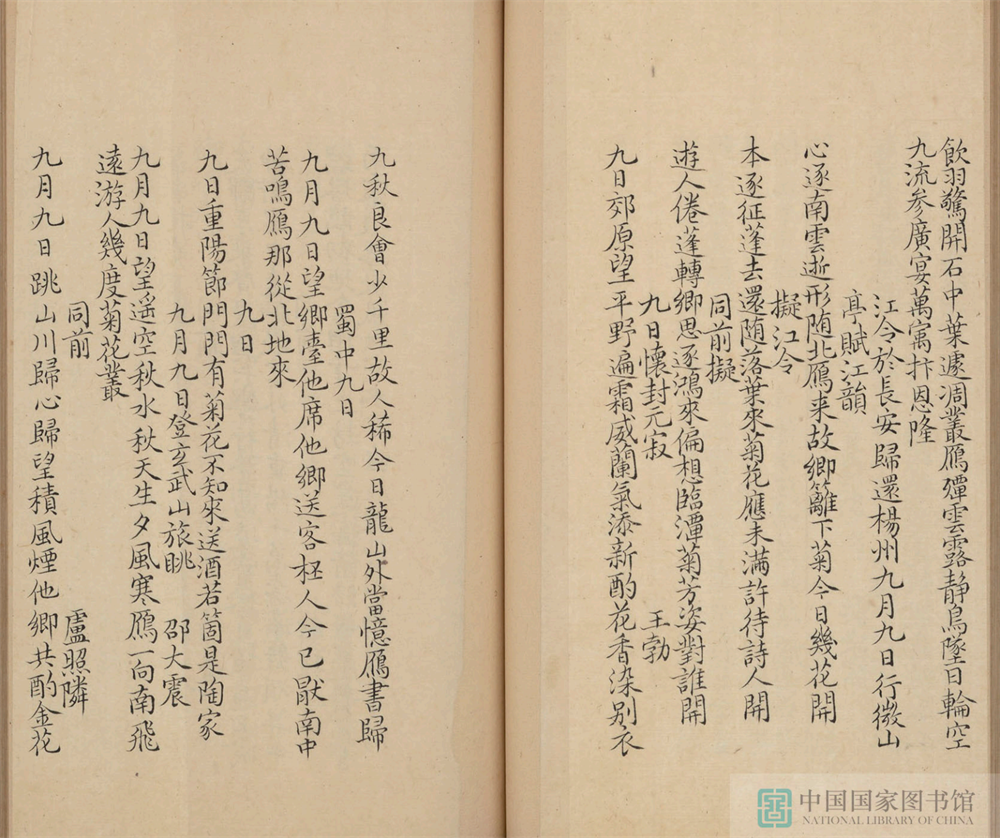 飲羽驚開石中葉遽凋叢鴈殫雲路靜烏墜日輪空
九流參廣宴萬寓抃恩隆
江令於長安歸還楊州九月九日行微山
亭賦江韻
心逐南雲逝形随北鴈来故鄉籬下菊今日幾花開
擬江令
本逐征蓬去還随落葉來菊花應未滿許待詩人開
同前擬
遊人倦蓬轉鄉思逐鴻來偏想臨潭菊芳姿對誰開
九日懷封元寂 王勃
九日郊原望平野遍霜威蘭氣添新酌花香染别衣
九秋良會少千里故人稀今日龍山外當憶鴈書歸
蜀中九日
九月九日望鄉臺他席他鄉送客杯人今已厭南中
苦鳴鴈那從北地來
九日
九日重陽節門門有菊花不知來送酒若箇是陶家
九月九日登玄武山旅眺 邵大震
九月九日望遥空秋水秋天生夕風寒鴈一向南飛
遠游人幾度菊花叢
同前 盧照隣
九月九日眺山川歸心歸望積風煙他鄉共酌金花
中国国家图书馆
NATIONAL LIBRARY OF CHINA